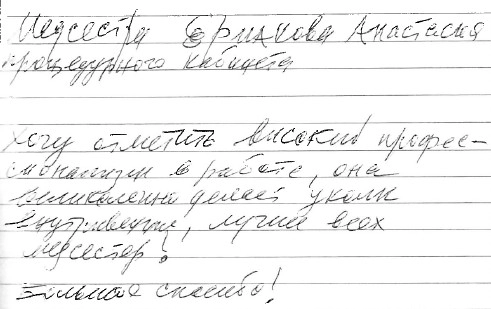 Медсестра Ермакова Анастасия
процедурного кабинета
Хочу отметить високий профес-
сионализм в работе, она
великолепно делает уколы
внутривенные, лучшее всех
медсестер!
Большое спасибо!